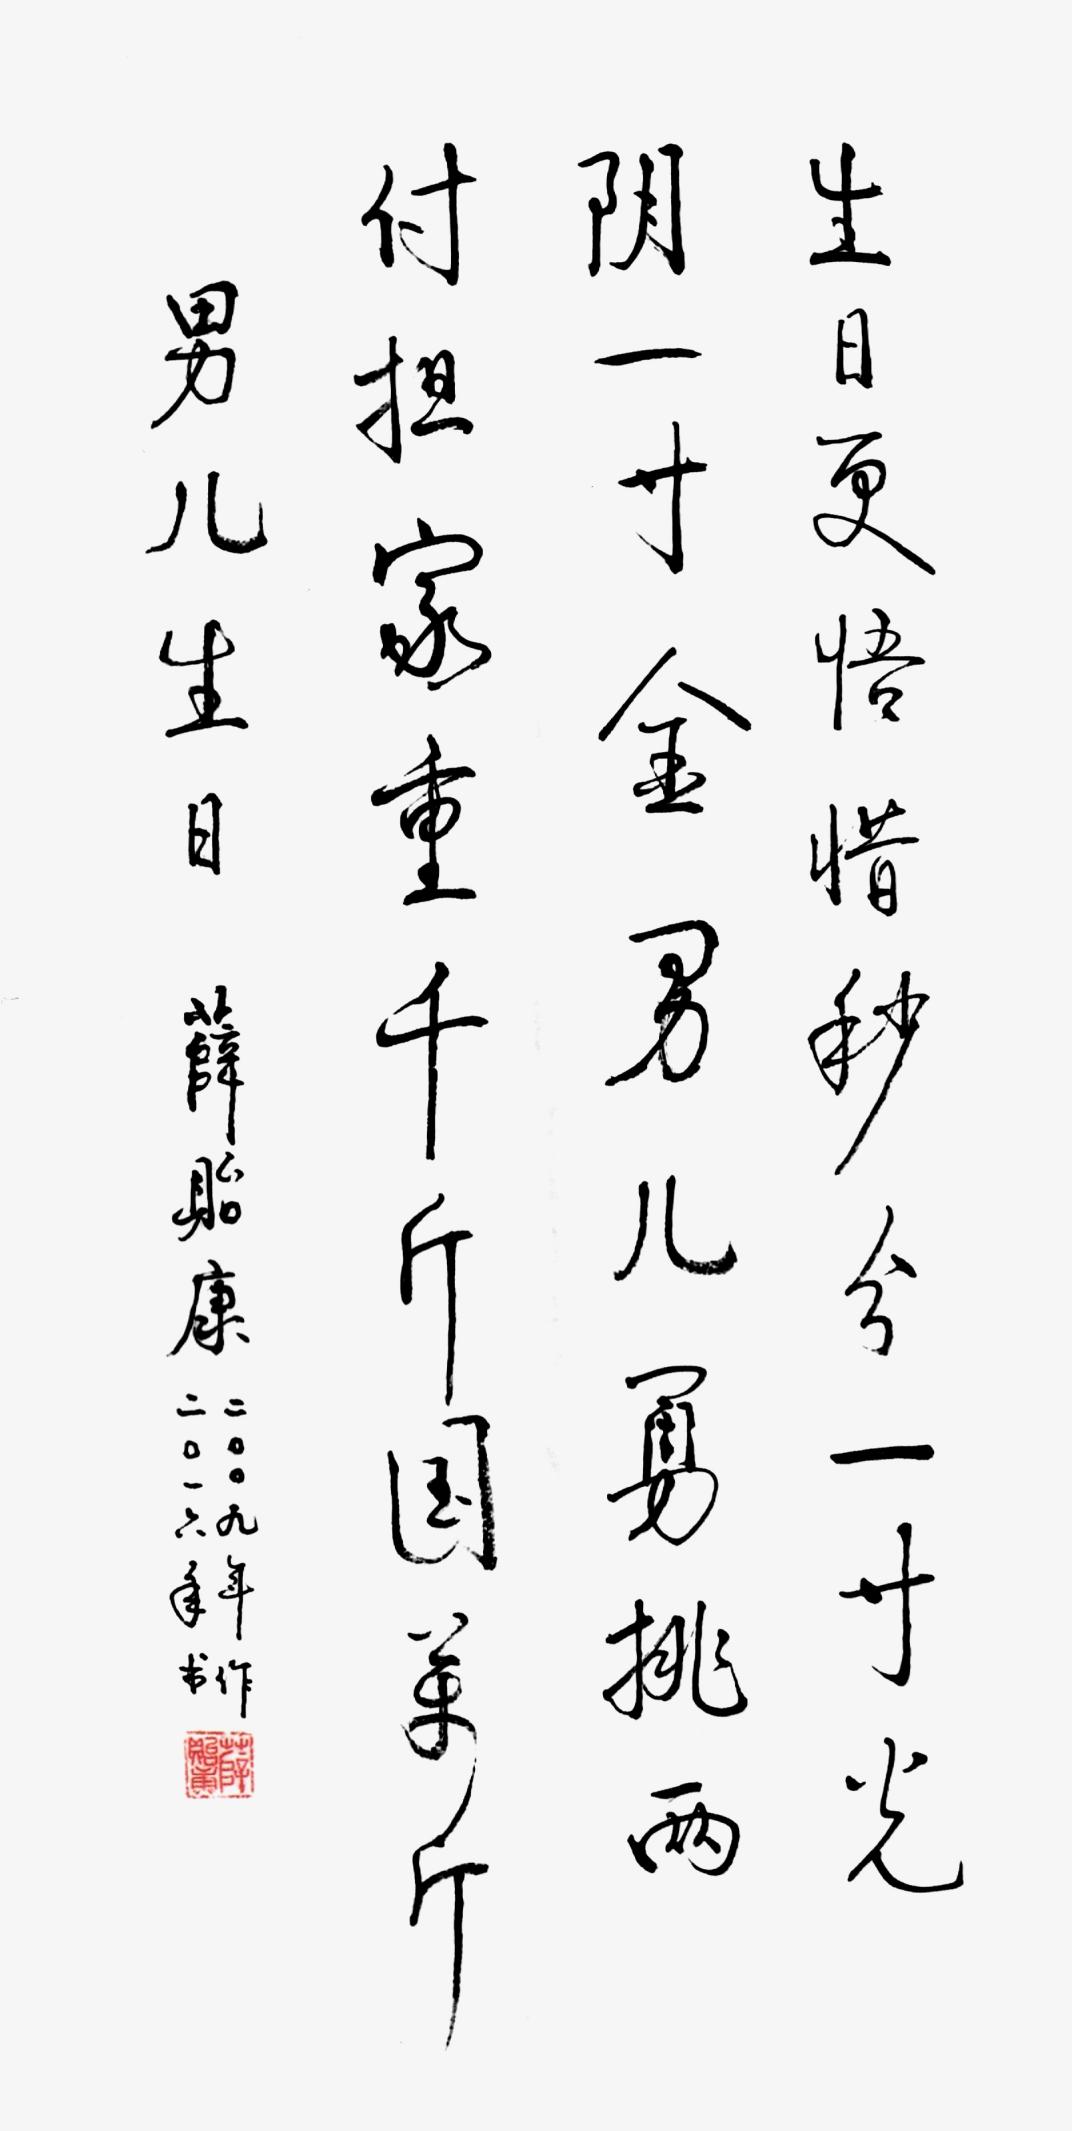 生日更悟惜秒分一寸光
阴一寸金男儿勇挑两
付担家重千斤国万斤
男儿生日 薛贻康
二〇〇九年作
二〇一六年书
薛贻康